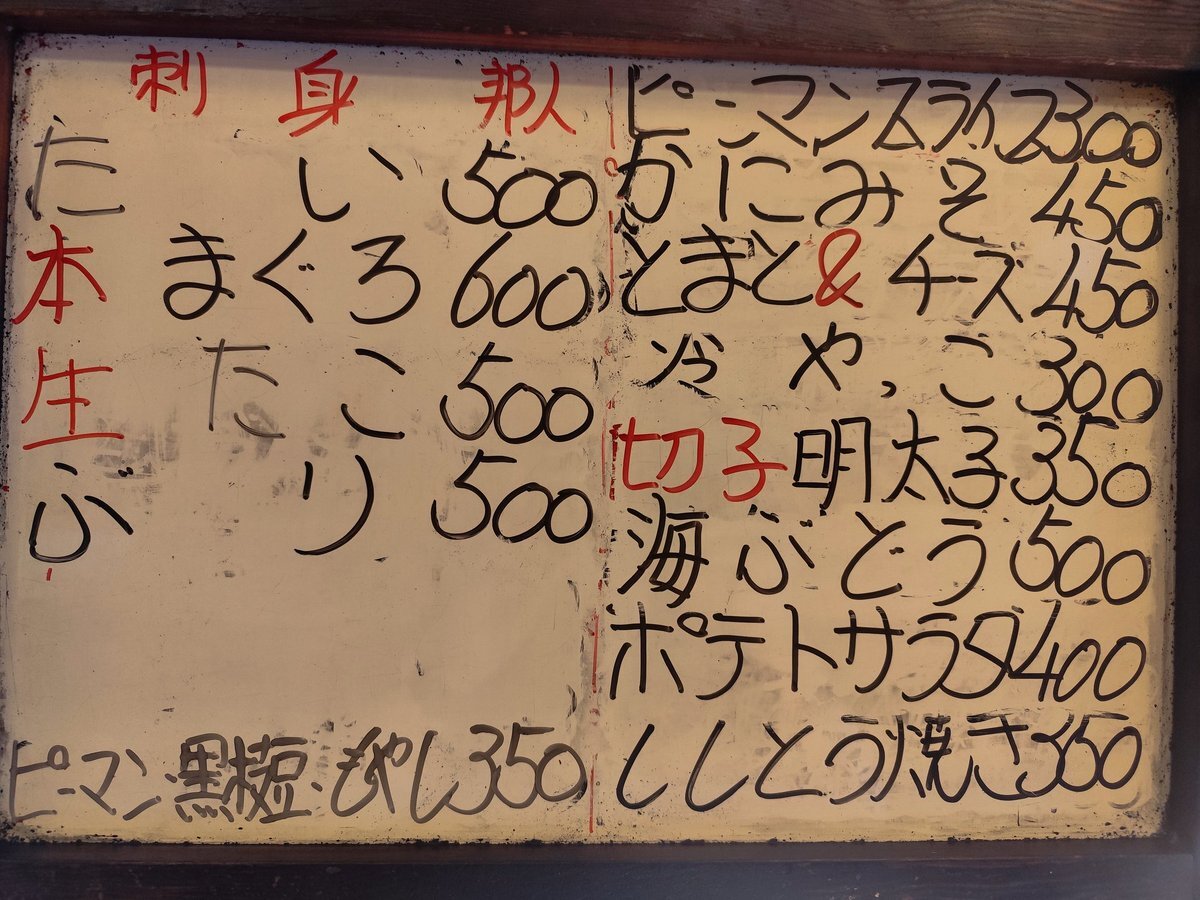 刺身 邦人
たい 500
本まぐろ 600
生たこ 500
ぶり 500
ピーマン黒椒もやし350
ピーマンスライス300
かにみそ 450
とまと&チーズ 450
冷やっこ 300
切子明太子350
海ぶどう500
ポテトサラダ400
ししとう焼き350